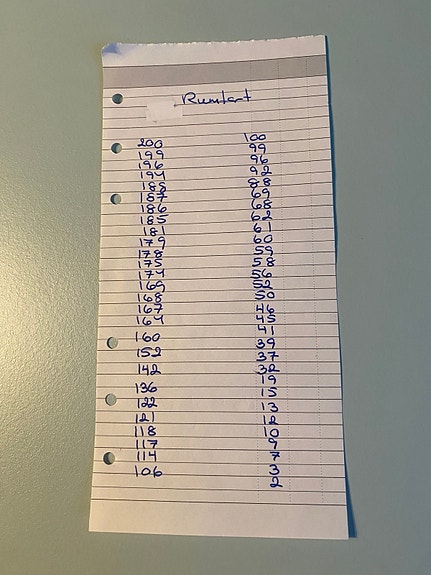 Rumfart
200
199
196
194
188
187
186
185
181
179
178
175
174
169
168
167
164
160
152
142
136
122
121
118
117
114
106
100
99
96
92
88
69
68
62
61
60
59
58
56
52
50
46
45
41
39
37
32
19
15
13
12
10
9
7
3
2